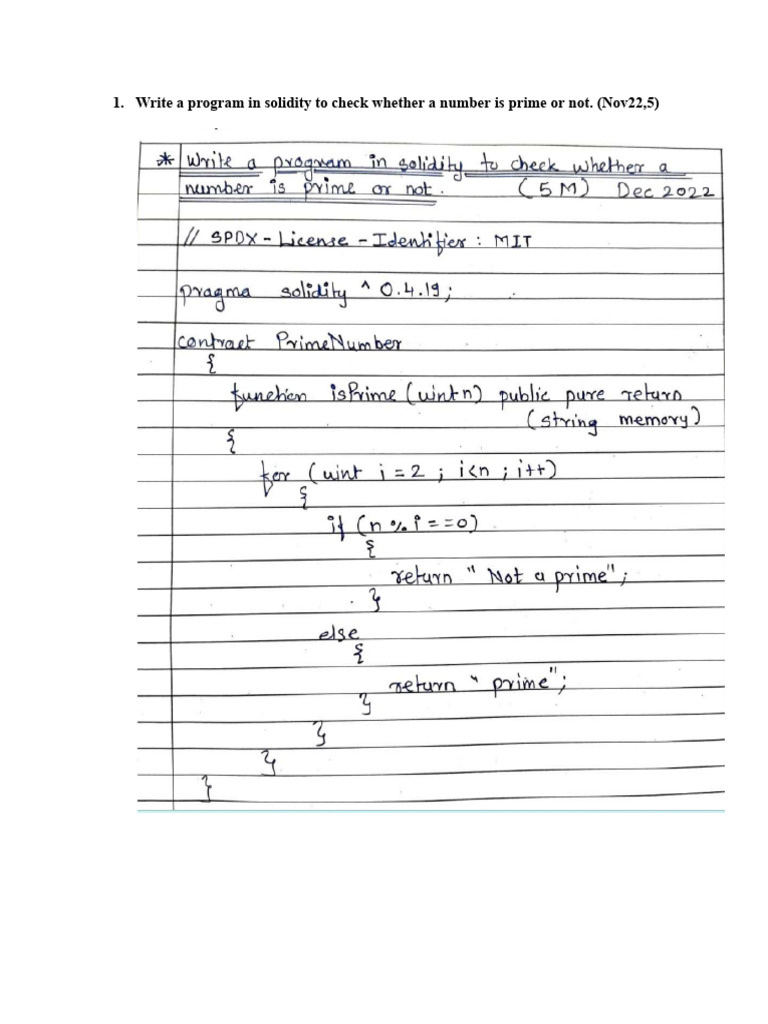 1. Write a program in solidity to check whether a number is prime or not. (Nov22,5)
* Write a program in solidity to check whether a
number is prime or not. (5M) Dec 2022
// SPDX-License-Identifier : MIT
pragma solidity ^ 0.4.19;
contract PrimeNumber
{
function isPrime (uint n) public pure return
(string memory)
{
for (uint i = 2 ; i<n ; i++)
{
if (n % i = =0)
{
return " Not a prime";
}
else
{
return " prime";
}
}
}
}